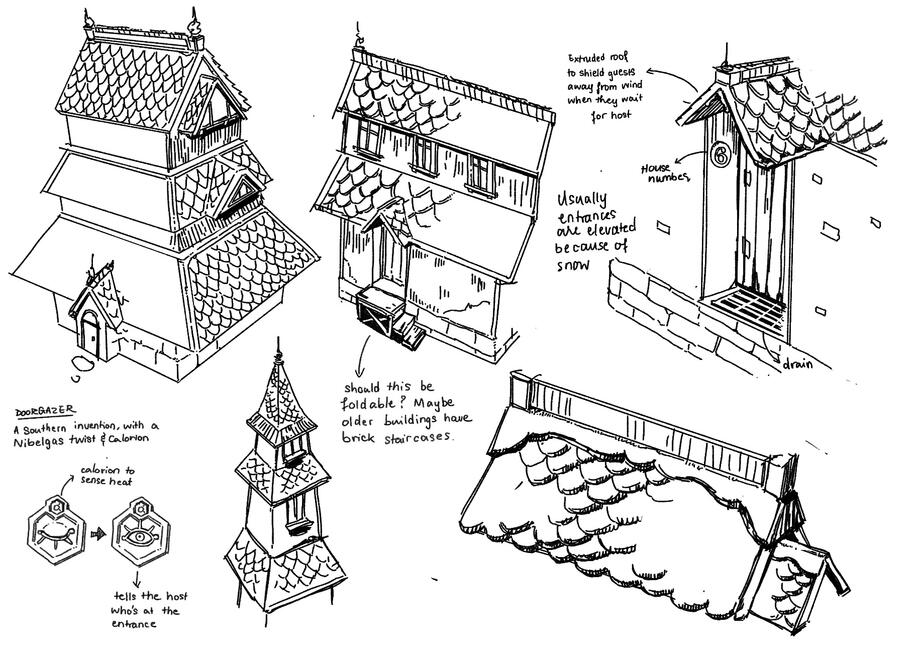 Extruded roof
to shield guests
away from wind
when they wait
for host
6
House
number
Usually
entrances
are elevated
because of
snow
drain
should this be
foldable? Maybe
older buildings have
brick staircases.
DOORGAZER
A Southern invention, with a
Nibelgas twist & Calorion
calorion to
sense heat
tells the host
who's at the
entrance